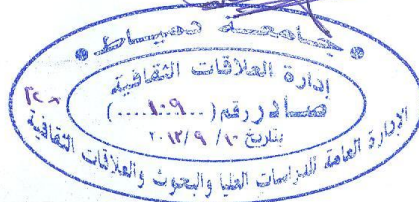 جامعة دمياط
إدارة العلاقات الثقافية
صادر رقم (..١٠٩..)
بتاريخ ١٠ / ٩ / ٢٠١٢
الإدارة العامة للدراسات العليا والبحوث والعلاقات الثقافية